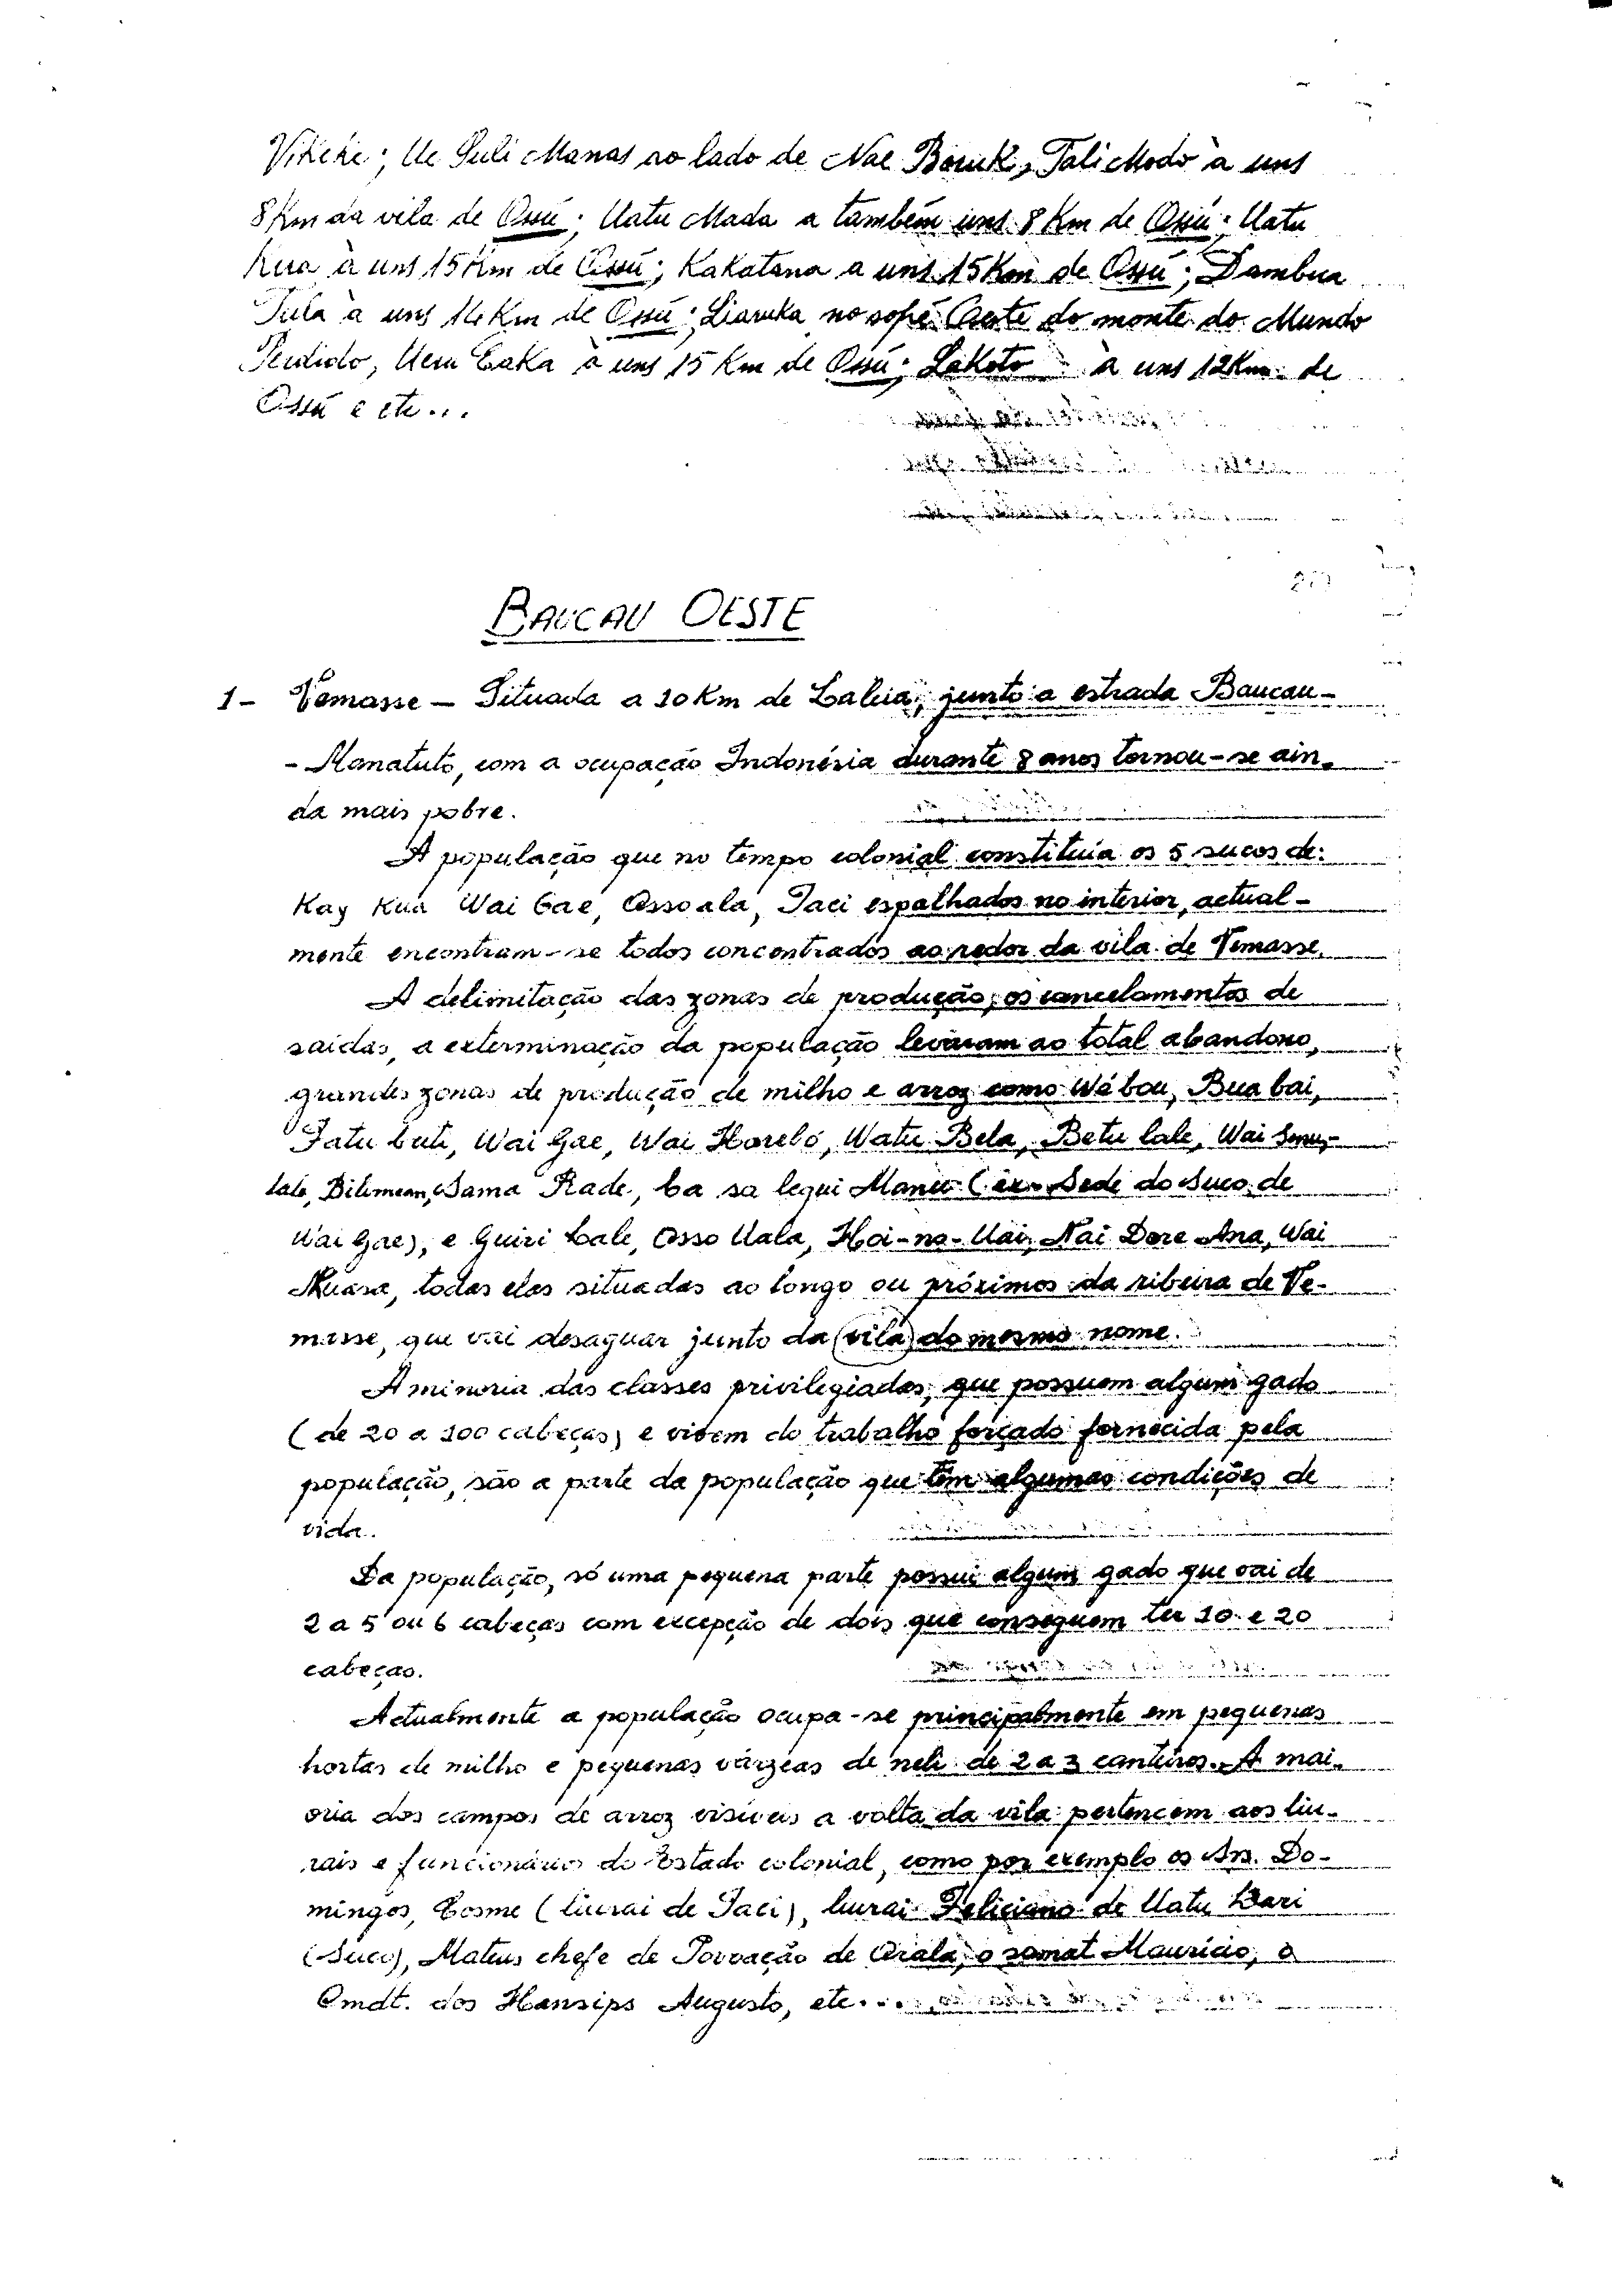 Vikeke; Ue Suli Manas ao lado de Nae Boruk, Tali Modo à uns
8 Km da vila de Ossú; Uatu Mada a também uns 8 Km de Ossú; Uatu
Kua à uns 15 Km de Ossú; Kakatana a uns 15 Km de Ossú; Dambua
Tula à uns 14 Km de Ossú; Liaruka no sopé Oeste do monte do Mundo
Perdido, Uem Caka à uns 15 Km de Ossú; Lakoto à uns 12 Km de
Ossú e etc...
BAUCAU OESTE
1 - Vemasse - Situada a 10 Km de Laleia, junto a estrada Baucau-
- Manatuto, com a ocupação Indonésia durante 8 anos tornou-se ain-
da mais pobre.
A população que no tempo colonial constituia os 5 sucos de:
Kay Kua Wai Gae, Ossoala, Taci espalhados no interior, actual-
mente encontram-se todos concontrados ao redor da vila de Vemasse.
A delimitação das zonas de produção, os cancelamentos de
saidas, a exterminação da população levaram ao total abandono,
grandes zonas de produção de milho e arroz como Wé bou, Bua bai,
Fatu buti, Wai Gae, Wai Harebó, Watu Bela, Betu lale, Wai
lale, Bilimean, Sama Rade, ba sa legui Manu (ex-Sede do Suco de
Wai Gae), e Guiri Lale, Osso Uala, Hoi-no-Uai, Nai Dore Ana, Wai
Muasa, todas elas situadas ao longo ou próximos da ribeira de Ve-
masse, que vai desaguar junto da vila do mesmo nome.
A minoria das classes privilegiadas, que possuem algum gado
(de 20 a 100 cabeças) e vivem do trabalho forçado fornecida pela
população, são a parte da população que têm algumas condições de
vida.
Da população, só uma pequena parte possui algum gado que vai de
2 a 5 ou 6 cabeças com excepção de dois que conseguem ter 10 e 20
cabeças.
Actualmente a população ocupa-se principalmente em pequenas
hortas de milho e pequenas várzeas de neli de 2 a 3 canteiros. A mai-
oria dos campos de arroz visíveis a volta da vila pertencem aos liu-
rais e funcionários do Estado colonial, como por exemplo os Srs. Do-
mingos, Cosme (liurai de Taci), liurai Feliciano de Uatu Lari
(Suco), Mateus chefe de Povoação de Orala, o samat Maurício, o
Cmdt. dos Hansips Augusto, etc...